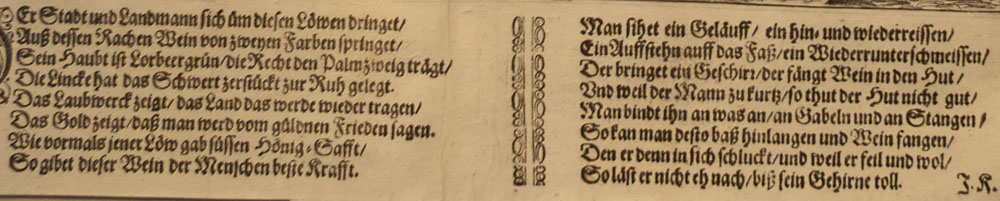 Er Stadt und Landmann sich üm diesen Löwen dringet/
Auß dessen Rachen Wein von zweyen Farben springet/
Sein Haubt ist Lorbeergrün/ die Recht den Palmzweig trägt/
Die Lincke hat das Schwert zerstückt zur Ruh gelegt.
Das Laubwerck zeigt/ das Land das werde wieder tragen/
Das Gold zeigt/ daß man werd vom güldnen Frieden sagen.
Wie vormals jener Löw gab süssen Hönig-Safft/
So gibet dieser Wein der Menschen beste Krafft.
Man sihet ein Geläuff/ ein hin- und wiederreissen/
Ein Auffstehn auff das Faß/ ein Wiederrunterschmeissen/
Der bringet ein Geschirr/ der fängt Wein in den Hut/
Vnd weil der Mann zu kurtz/ so thut der Hut nicht gut/
Man bindt ihn an was an/ an Gabeln und an Stangen/
So kan man desto baß hinlangen und Wein fangen/
Den er denn in sich schluckt/ und weil er feil und wol/
So läst er nicht eh nach/ biß sein Gehirne toll.
J. K.